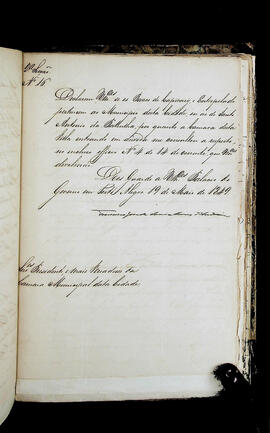 2ª Secção
Nº 16
Declarem VMces se os Passos de Capivary, e Entrepelado
pertencem ao Municipio desta Cidade ou ao de Santo
Antonio da Patrulha, por quanto a Camara desta
Villa entrando em duvida me consultou a respeito,
no incluso officio Nº 4 de 14 do corrente, que VMces
devolverão.
Deos Guarde a VMces Palacio do
Governo em Porto Alegre 19 de Maio de 1849
Snres Presidente e mais Vereadores da
Camara Municipal desta Cidade